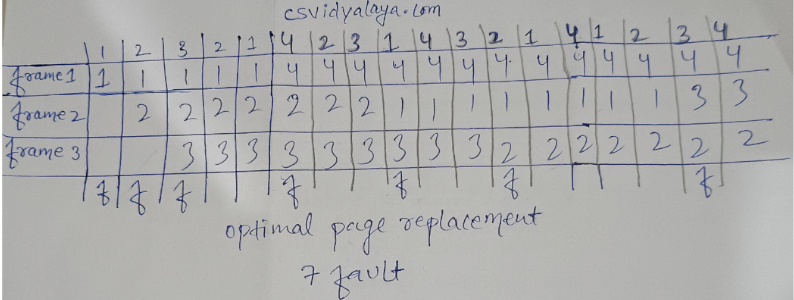 csvidyalaya.com
1 2 3 2 1 4 2 3 1 4 3 2 1 4 1 2 3 4
frame 1 1 1 1 1 1 4 4 4 4 4 4 4 4 4 4 4 4 4
frame 2 2 2 2 2 2 2 2 1 1 1 1 1 1 1 1 3 3
frame 3 3 3 3 3 3 3 3 3 3 2 2 2 2 2 2 2
f f f f f f f
optimal page replacement
7 fault